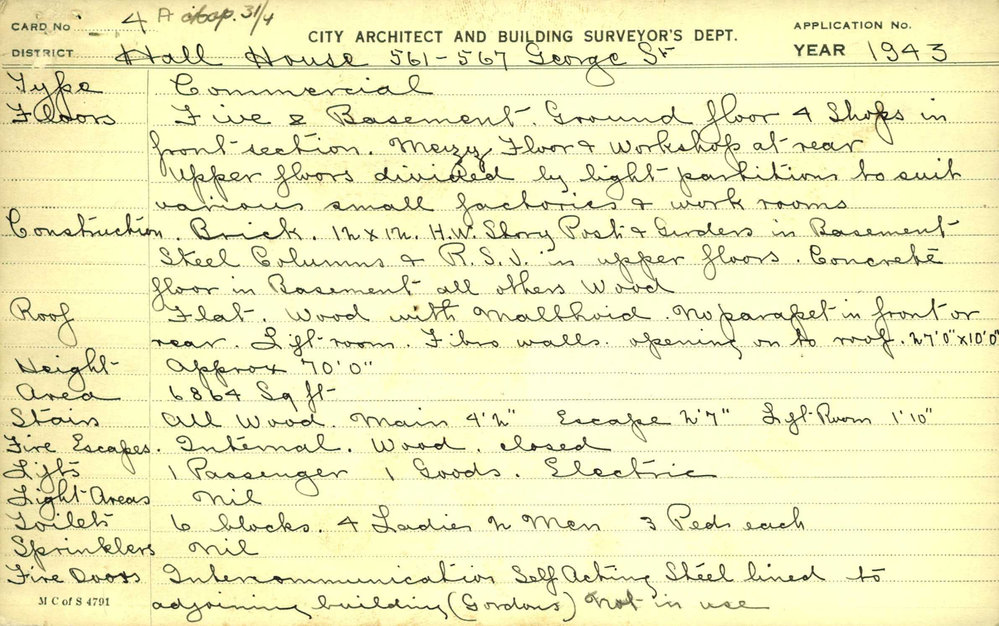 CARD No 4 A 31/4 APPLICATION No.
CITY ARCHITECT AND BUILDING SURVEYOR'S DEPT.
DISTRICT Hall House 561-567 George St YEAR 1943
Type Commercial
Floors Five & Basement. Ground floor 4 Shops in
front section. Mezzy Floor & Workshop at rear
Upper floors divided by light partitions to suit
various small factories & work rooms
Construction. Brick. 12 x 12. H.W. Story Post & Girders in Basement
Steel Columns & R.S.J. in upper floors. Concrete
floor in Basement all others Wood
Roof Flat. Wood with Malthoid. No parapet in front or
rear. Lift room. Fibro walls. opening on to roof. 27'0" x 10'0"
Height Approx 70'0"
Area 6864 Sq ft
Stairs All Wood. Main 4'2" Escape 2'7" Lift Room 1'10"
Fire Escapes. Internal. Wood. closed
Lifts 1 Passenger 1 Goods. Electric
Light Areas Nil
Toilets 6 blocks. 4 Ladies 2 Men 3 Peds each
Sprinklers Nil
Fire Doors Intercommunication Self Acting Steel lined to
adjoining building (Gordons) Not in use
M C of S 4791